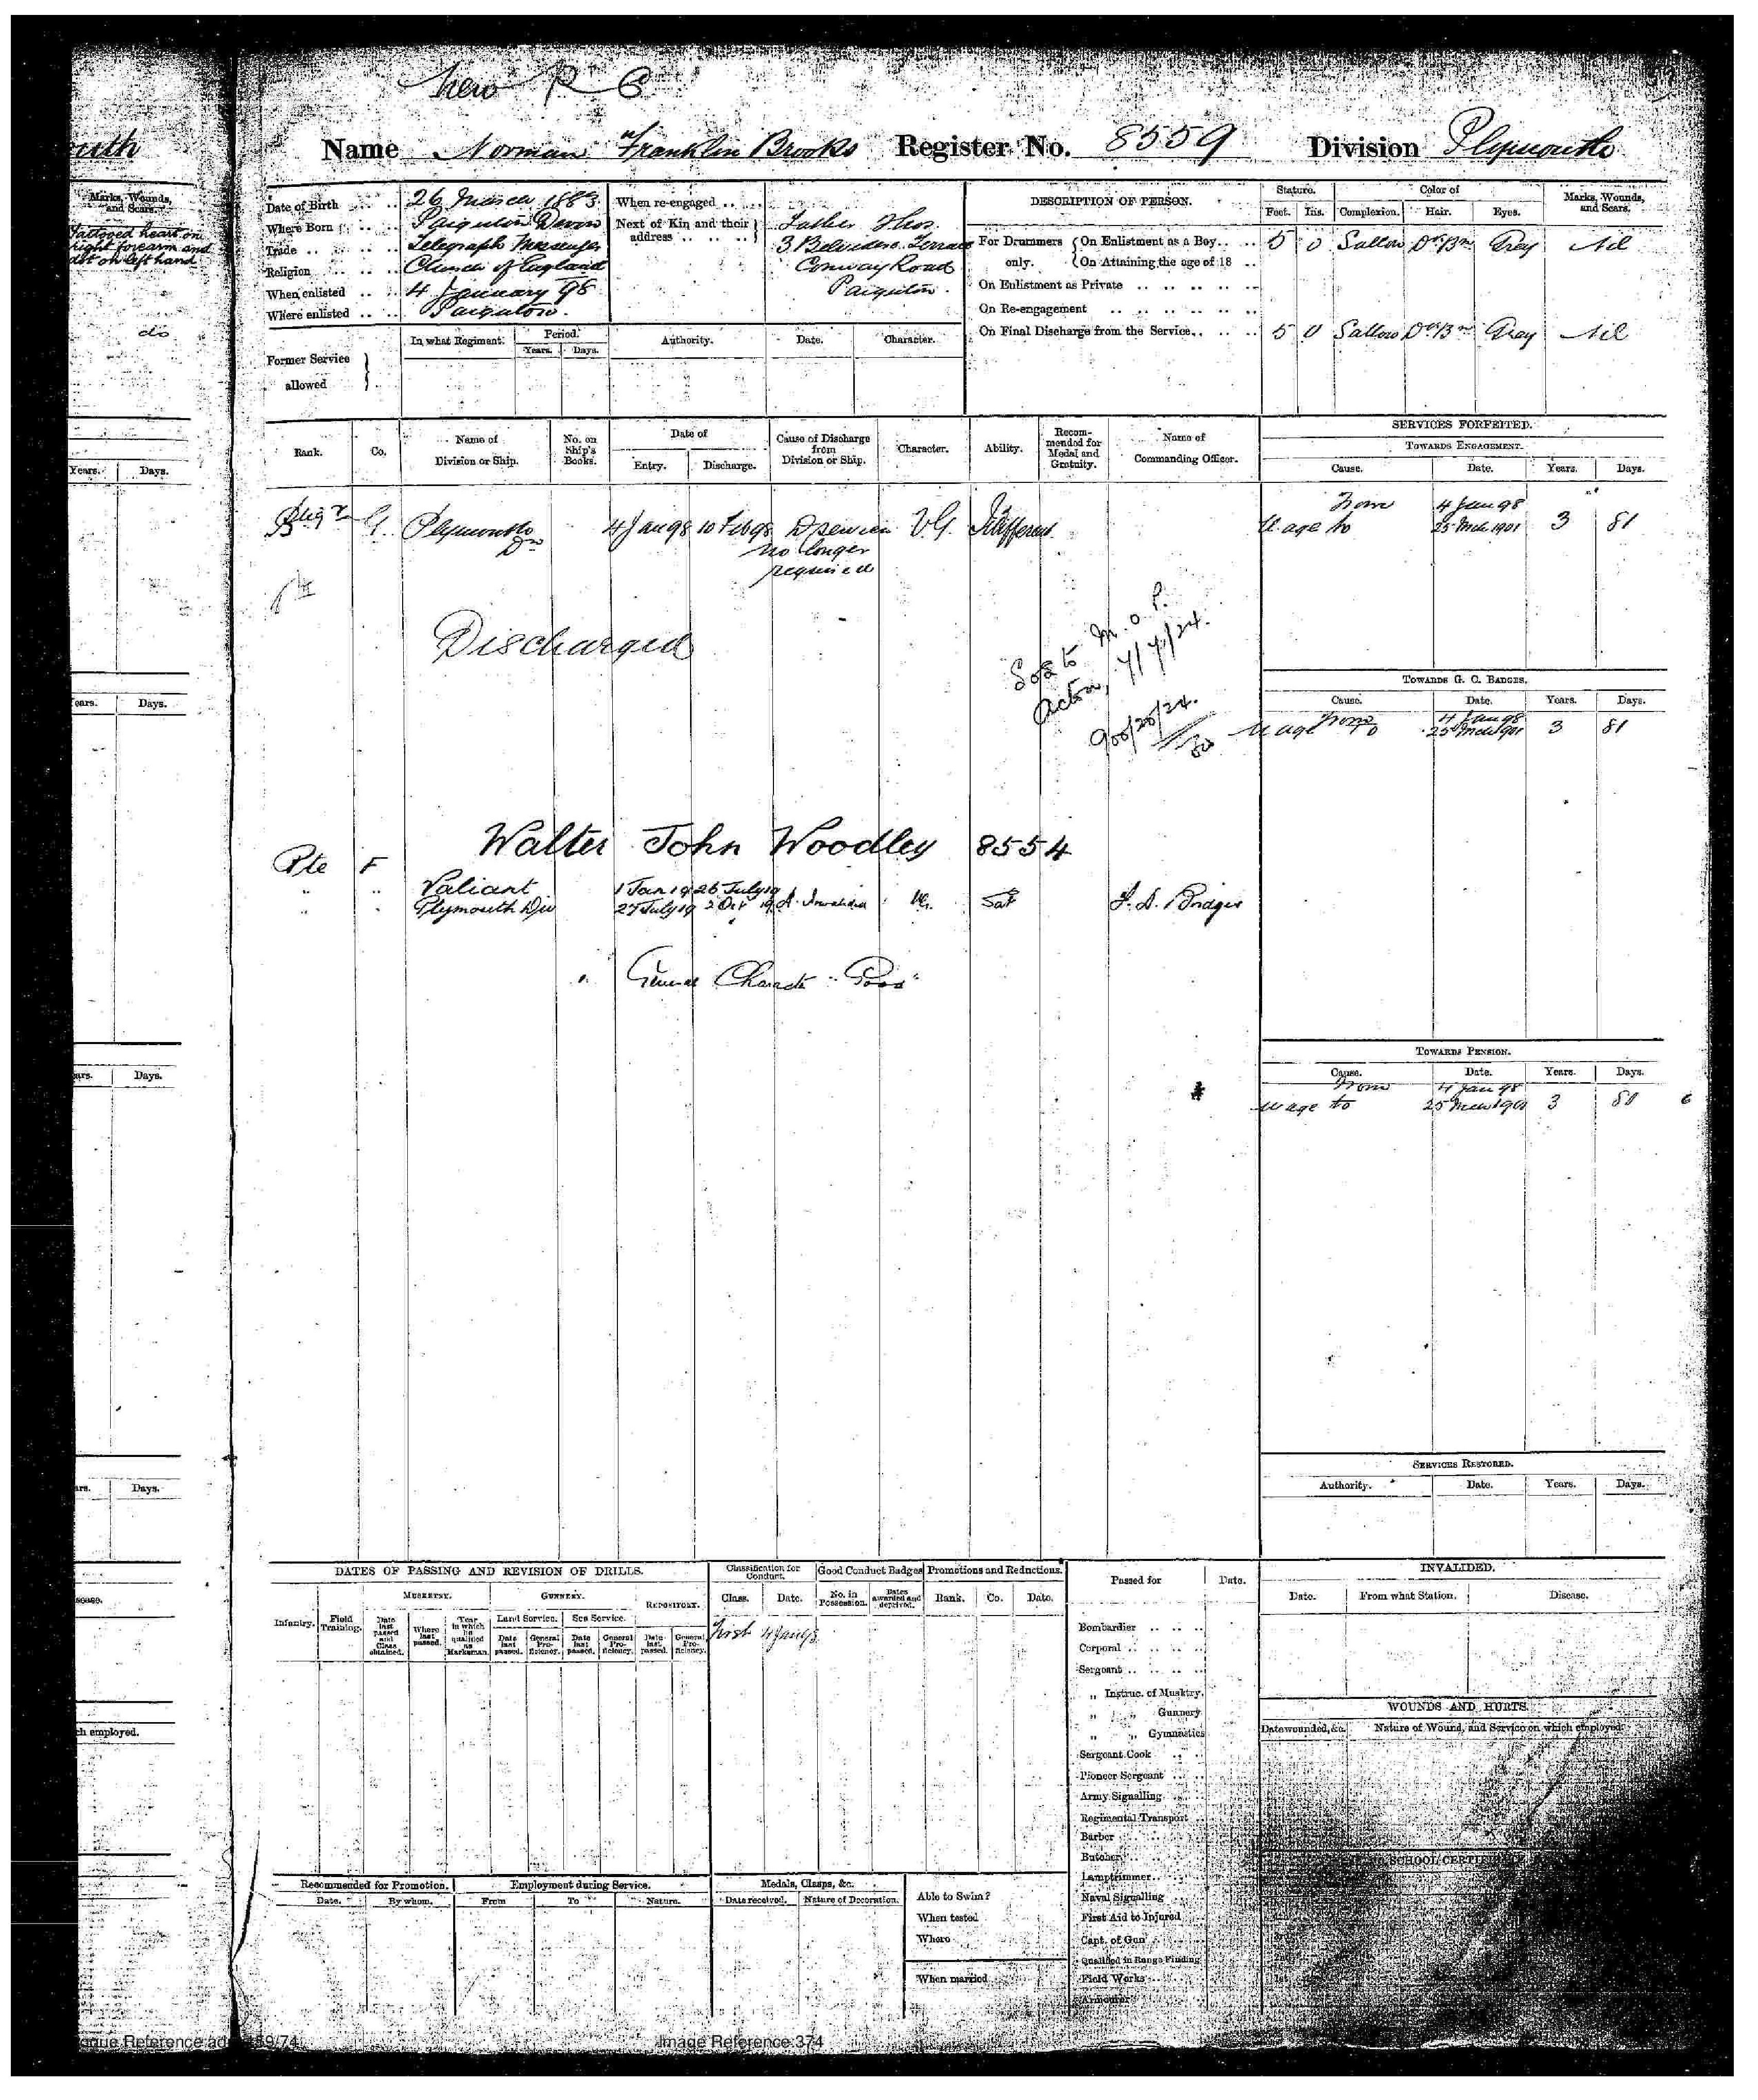 New R C
Name Norman Franklin Brooks Register No. 8559 Division Plymouth
Date of Birth 26 March 1883
Where Born Paignton Devon
Trade Telegraph Messenger
Religion Church of England
When enlisted 4 January 98
Where enlisted Paignton.
When re-engaged
Next of Kin and their address
Father Thos.
3 Belvidere Terrace
Conway Road
Paignton.
DESCRIPTION OF PERSON.
Stature. Color of Marks, Wounds, and Scars.
Feet. Ins. Complexion. Hair. Eyes.
For Drummers only. On Enlistment as a Boy 5 0 Sallow Dk Bn Gray Nil
On Attaining the age of 18
On Enlistment as Private
On Re-engagement
On Final Discharge from the Service 5 0 Sallow Dk Bn Gray Nil
Former Service allowed
In what Regiment. Period. Authority. Date. Character.
Years. Days.
Rank. Co. Name of Division or Ship. No. on Ship's Books. Date of Entry. Discharge. Cause of Discharge from Division or Ship. Character. Ability. Recommended for Medal and Gratuity. Name of Commanding Officer.
G. Plymouth Dn 4 Jan 98 10 Feb 98 no longer required V.G. Indifferent
Discharged
S o s to M. O. P.
Acton, 7/7/24.
900/20/24.
Walter John Woodley 8554
Pte F
" " Valiant 1 Jan 19 26 July 19
" " Plymouth Div 27 July 19 2 Oct 19 Invalided VG. Sat
General Character "Good"
SERVICES FORFEITED.
TOWARDS ENGAGEMENT.
Cause. Date. Years. Days.
From 4 Jan 98
U age to 25 Mch 1901 3 81
TOWARDS G. C. BADGES.
Cause. Date. Years. Days.
From 4 Jan 98
U age to 25 Mch 1901 3 81
TOWARDS PENSION.
Cause. Date. Years. Days.
From 4 Jan 98
U age to 25 Mch 1901 3 81
SERVICES RESTORED.
Authority. Date. Years. Days.
DATES OF PASSING AND REVISION OF DRILLS.
Infantry. Field Training. MUSKETRY. GUNNERY. REPOSITORY.
Land Service. Sea Service.
Date last passed and Class obtained. Where last passed. Year in which he qualified as Marksman. Date last passed. General Proficiency. Date last passed. General Proficiency. Date last passed. General Proficiency.
Classification for Conduct. Good Conduct Badges Promotions and Reductions.
Class. Date. No. in Possession. Dates awarded and deprived. Rank. Co. Date.
First 4 Jan 98
Passed for Date.
Bombardier
Corporal
Sergeant
" Instruc. of Musktry.
" " Gunnery
" " Gymnastics
Sergeant Cook
Pioneer Sergeant
Army Signalling
Regimental Transport
Barber
Butcher
Lamptrimmer
Naval Signalling
First Aid to Injured
Capt. of Gun
Qualified in Range Finding
Field Works
Armourer
INVALIDED.
Date. From what Station. Disease.
WOUNDS AND HURTS.
Date wounded, &c. Nature of Wound, and Service on which employed.
SCHOOL CERTIFICATE
Recommended for Promotion. Employment during Service. Medals, Clasps, &c.
Date. By whom. From To Nature. Date received. Nature of Decoration.
Able to Swim?
When tested
Where
When married
Marks, Wounds, and Scars.
Tattooed heart on
right forearm and
dot on left hand
do
Years. Days.
ears. Days.
ars. Days.
ars. Days.
ch employed.
Image Reference:374